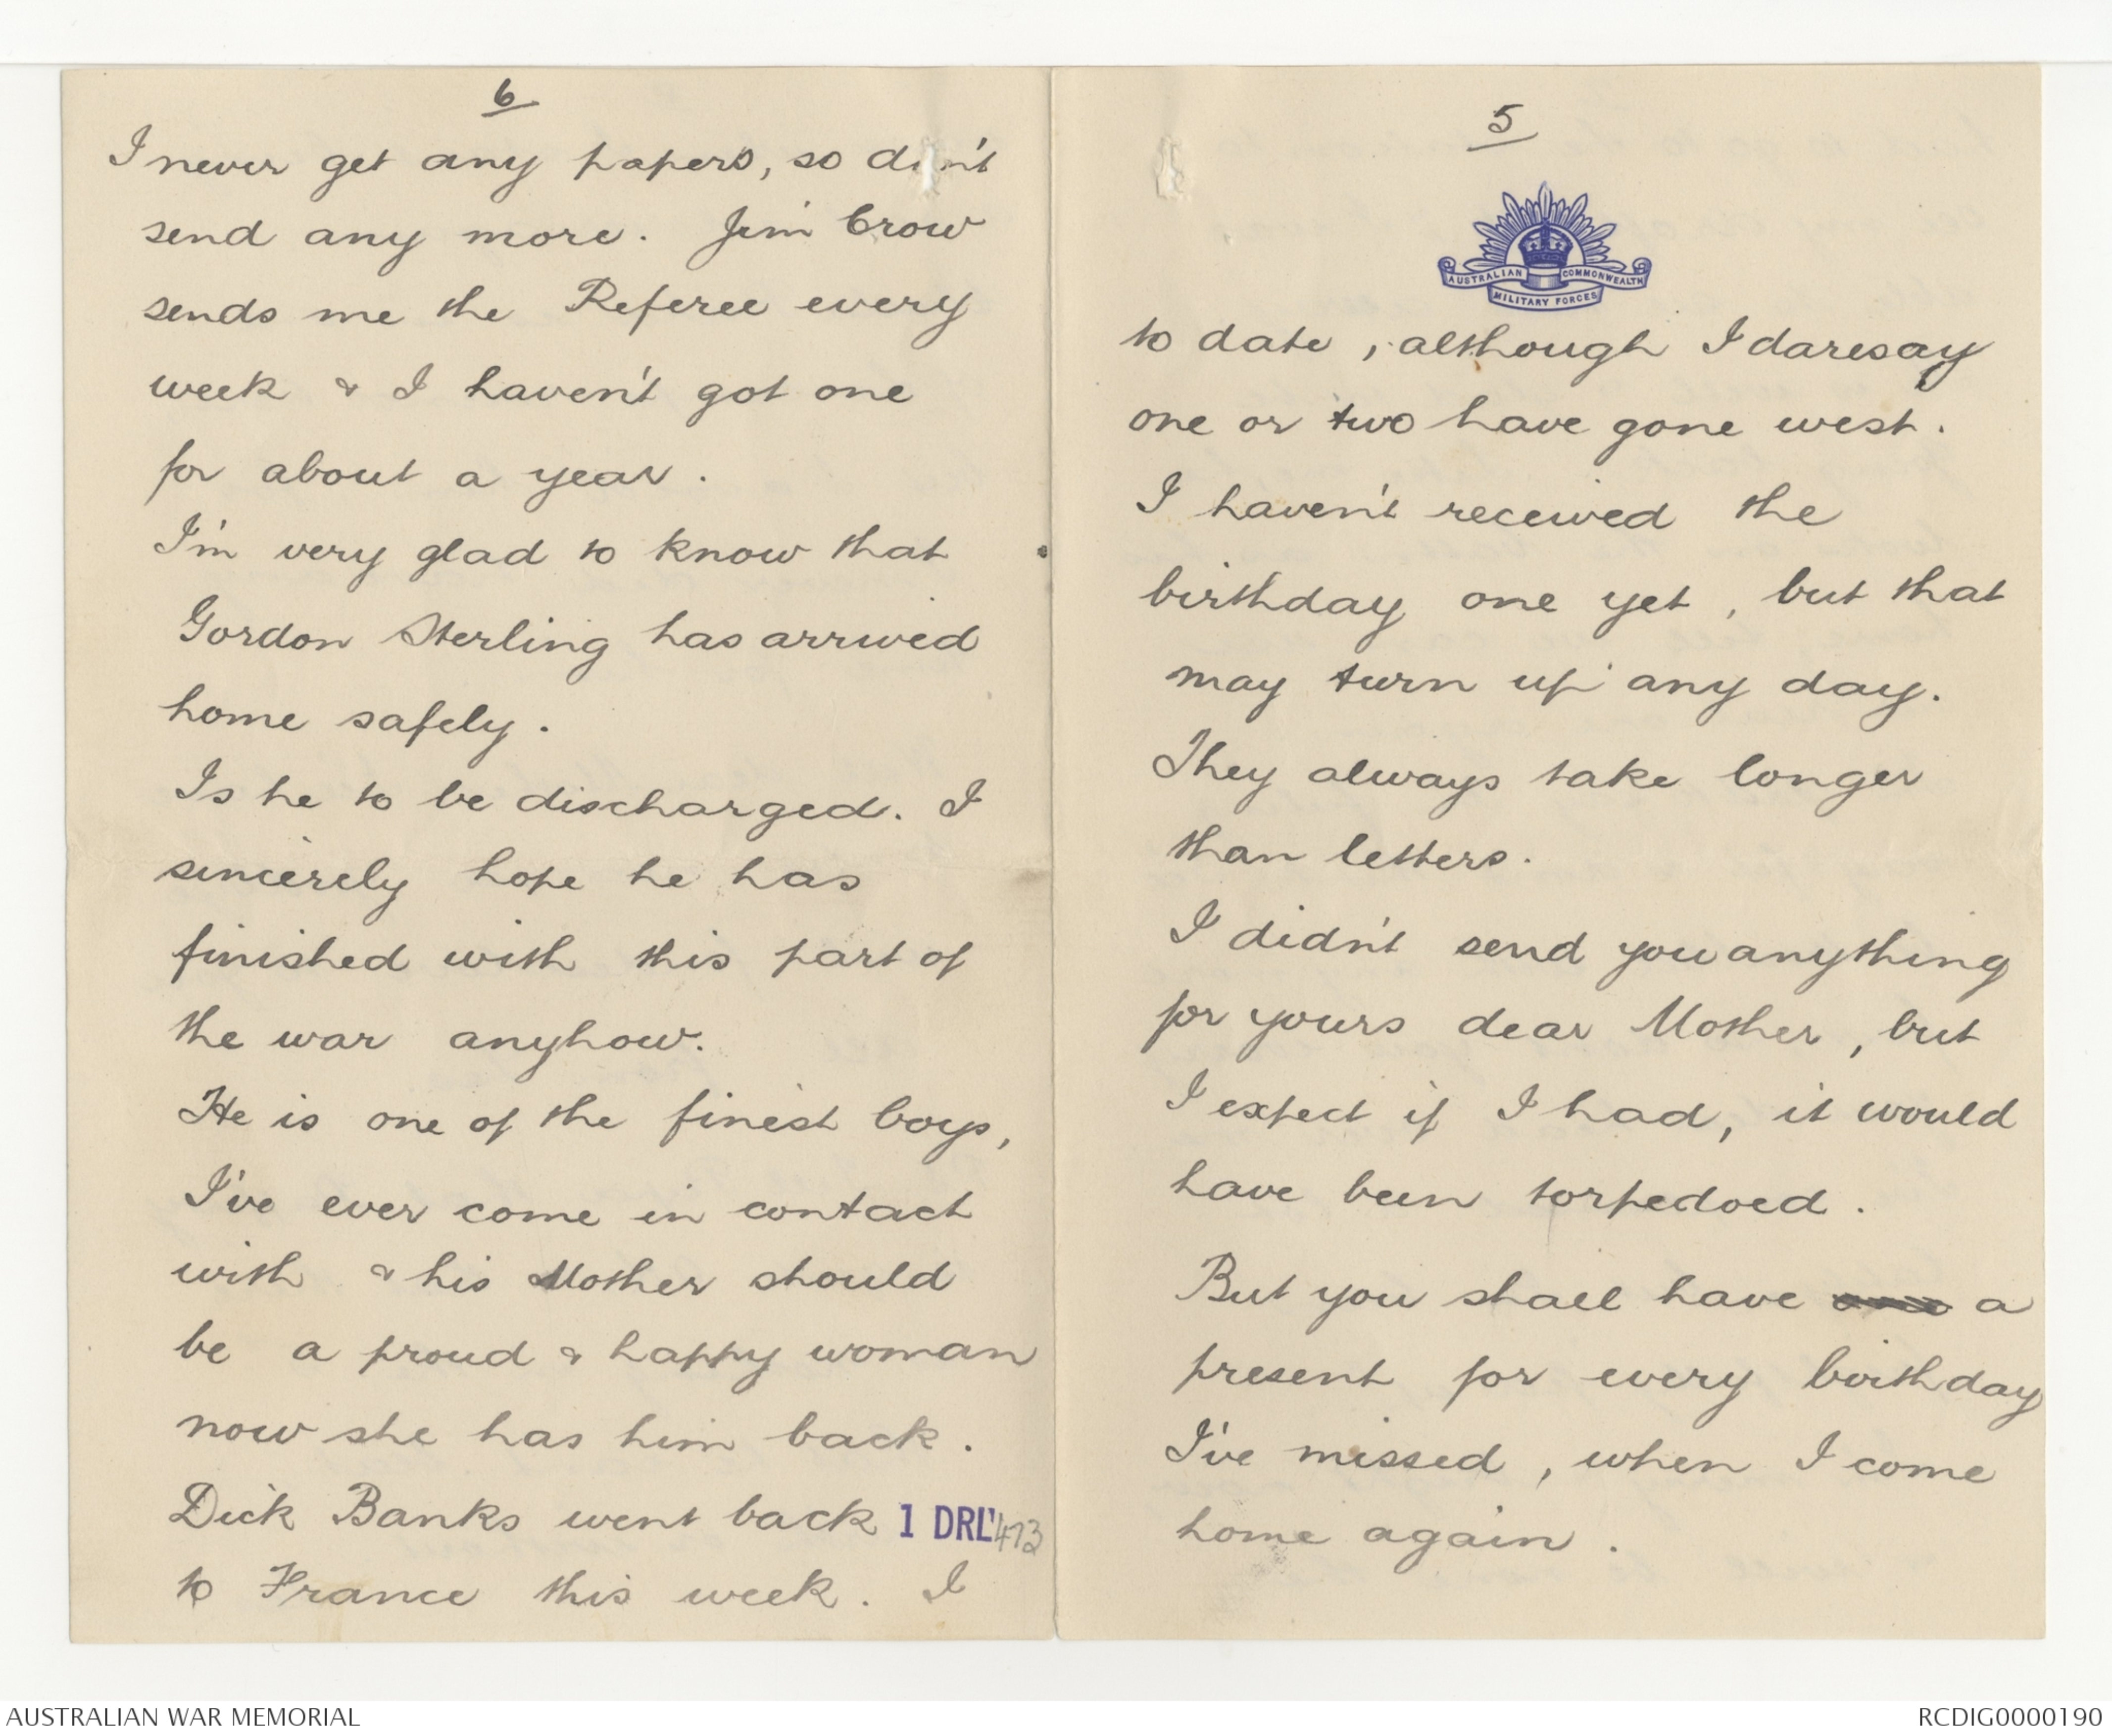 6
I never get any papers, so don't
send any more. Jim Crow
sends me the Referee every
week & I haven't got one
for about a year.
I'm very glad to know that
Gordon Sterling has arrived
home safely.
Is he to be discharged. I
sincerely hope he has
finished with this part of
the war anyhow.
He is one of the finest boys,
I've ever come in contact
with & his Mother should
be a proud & happy woman
now she has him back.
Dick Banks went back
1 DRL 473
to France this week. I
5
AUSTRALIAN COMMONWEALTH
MILITARY FORCES
to date, although I daresay
one or two have gone west.
I haven't received the
birthday one yet, but that
may turn up any day.
They always take longer
than letters.
I didn't send you anything
for yours dear Mother, but
I expect if I had, it would
have been torpedoed.
But you shall have a
present for every birthday
I've missed, when I come
home again.
AUSTRALIAN WAR MEMORIAL
RCDIG0000190